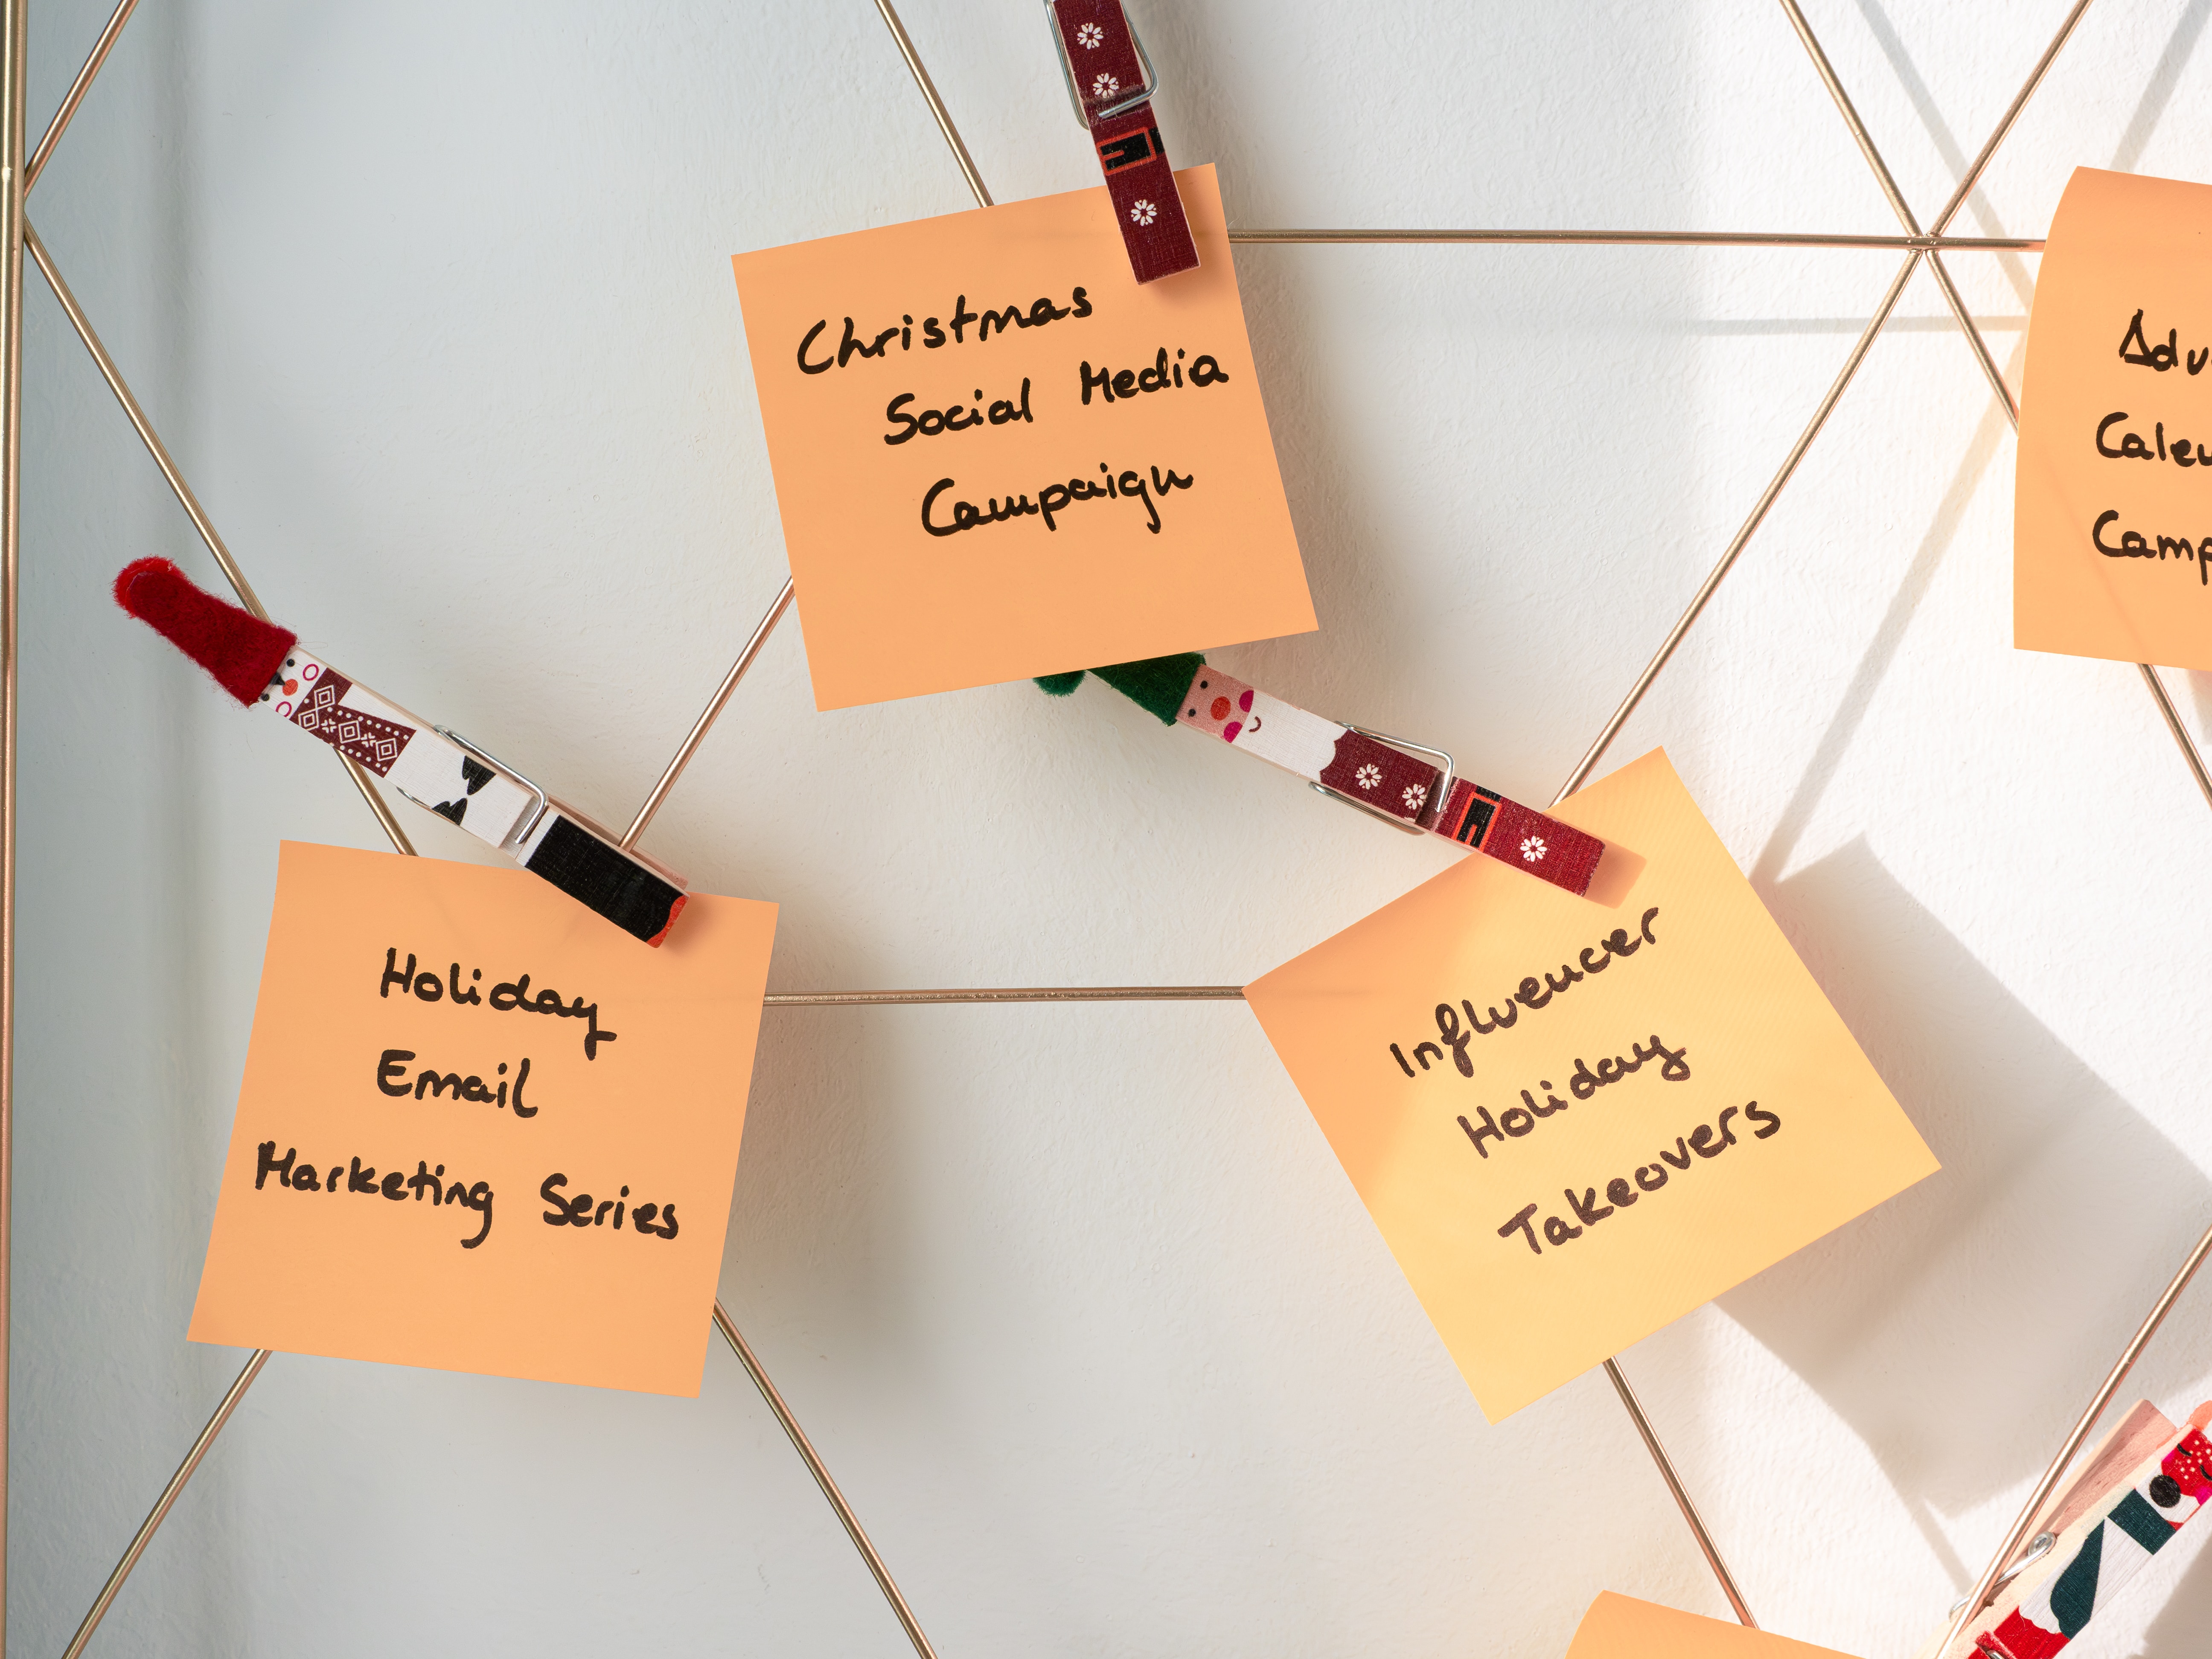 Christmas
Social Media
Campaign
Holiday
Email
Marketing Series
Influencer
Holiday
Takeovers